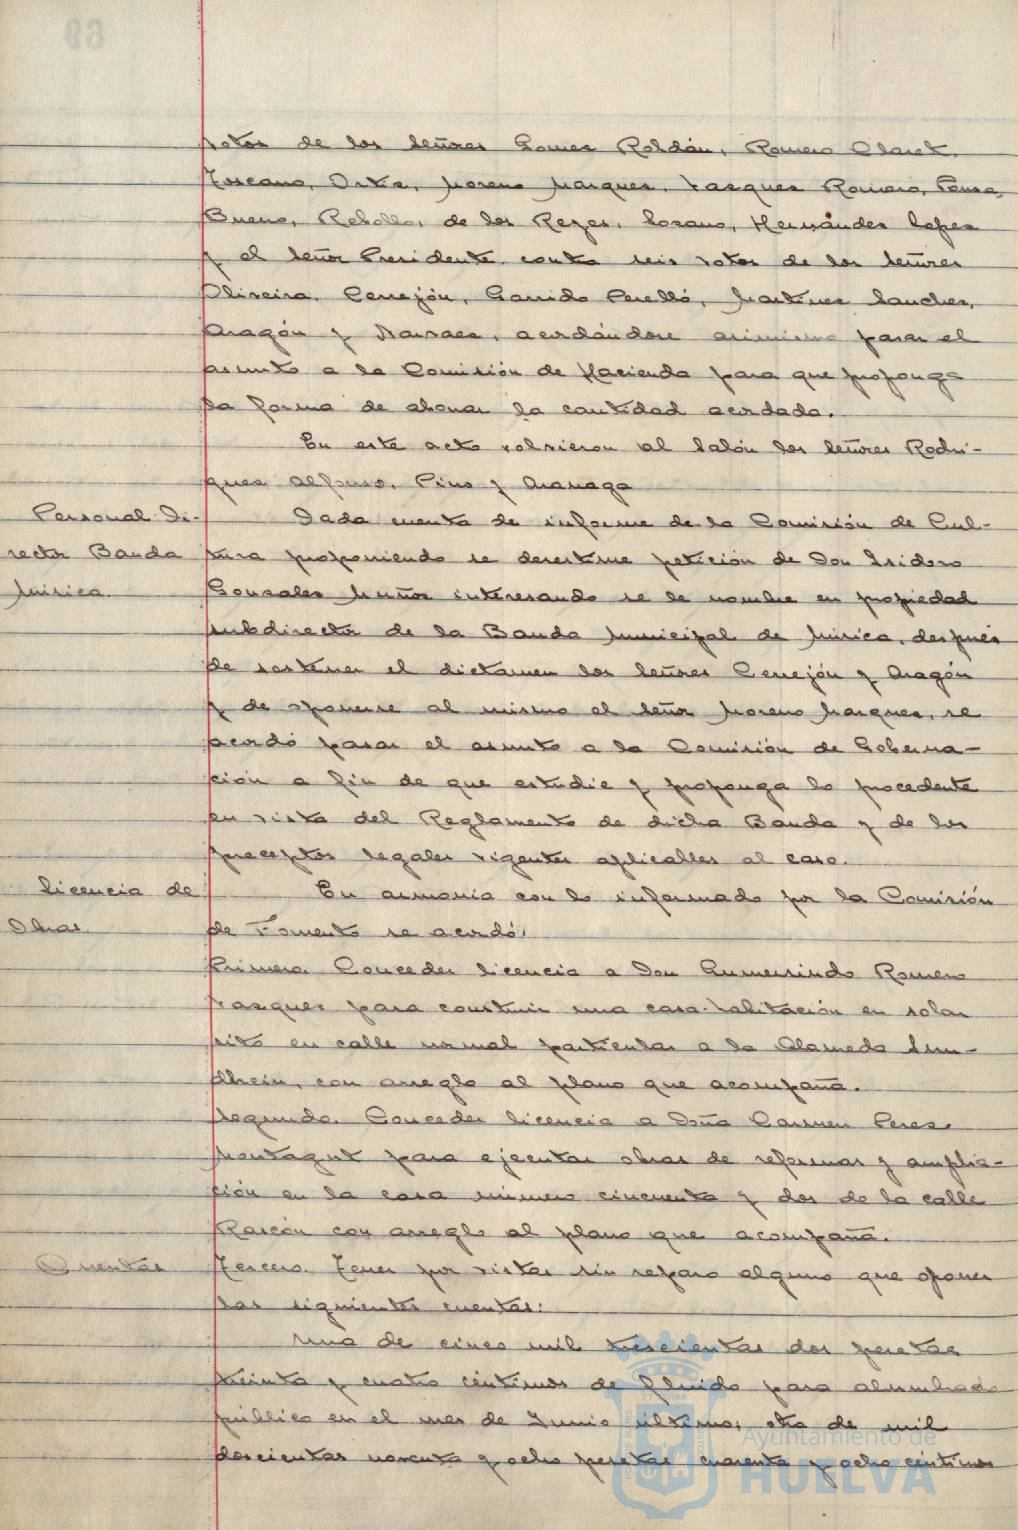 votos de los señores Gomez Roldán, Romero Claret,
Toscano, Ortiz, Moreno Marquez, Vazquez Romero, Ponce,
Bueno, Rebollo, de los Reyes, Lozano, Hernández Lopez
y el señor Presidente contra seis votos de los señores
Oliveira, Cerrejón, Garrido Perelló, Martinez Sanchez,
Aragón y Narvaez, acordándose asimismo pasar el
asunto a la Comisión de Hacienda para que proponga
la forma de abonar la cantidad acordada.
En este acto volvieron al Salón los señores Rodri-
guez Alfonso, Pino y Aranaga
Personal. Di-
rector Banda
Musica.
Dada cuenta de informe de la Comisión de Cul-
tura proponiendo se desestime petición de Don Isidoro
Gonzalez Muñoz interesando se le nombre en propiedad
subdirector de la Banda Municipal de Música, después
de sostener el dictamen los señores Cerrejón y Aragón
y de oponerse al mismo el señor Moreno Marquez, se
acordó pasar el asunto a la Comisión de Goberna-
ción a fin de que estudie y proponga lo procedente
en vista del Reglamento de dicha Banda y de los
preceptos legales vigentes aplicables al caso.
Licencia de
Obras.
En armonia con lo informado por la Comisión
de Fomento se acordó:
Primero. Conceder licencia a Don Gumersindo Romero
Vazquez para construir una casa-habitación en solar
sito en calle normal particular a la Alameda Sun-
dhein, con arreglo al plano que acompaña.
Segundo. Conceder licencia a Doña Carmen Perez
Montagut para ejecutar obras de reformas y amplia-
ción en la casa número cincuenta y dos de la calle
Rascón con arreglo al plano que acompaña.
Cuentas
Tercero. Tener por vistas sin reparo alguno que oponer
las siguientes cuentas:
Una de cinco mil trescientas dos pesetas
treinta y cuatro céntimos de fluido para alumbrado
público en el mes de Junio último; otra de mil
doscientas noventa y ocho pesetas cuarenta y ocho céntimos
Ayuntamiento de
HUELVA